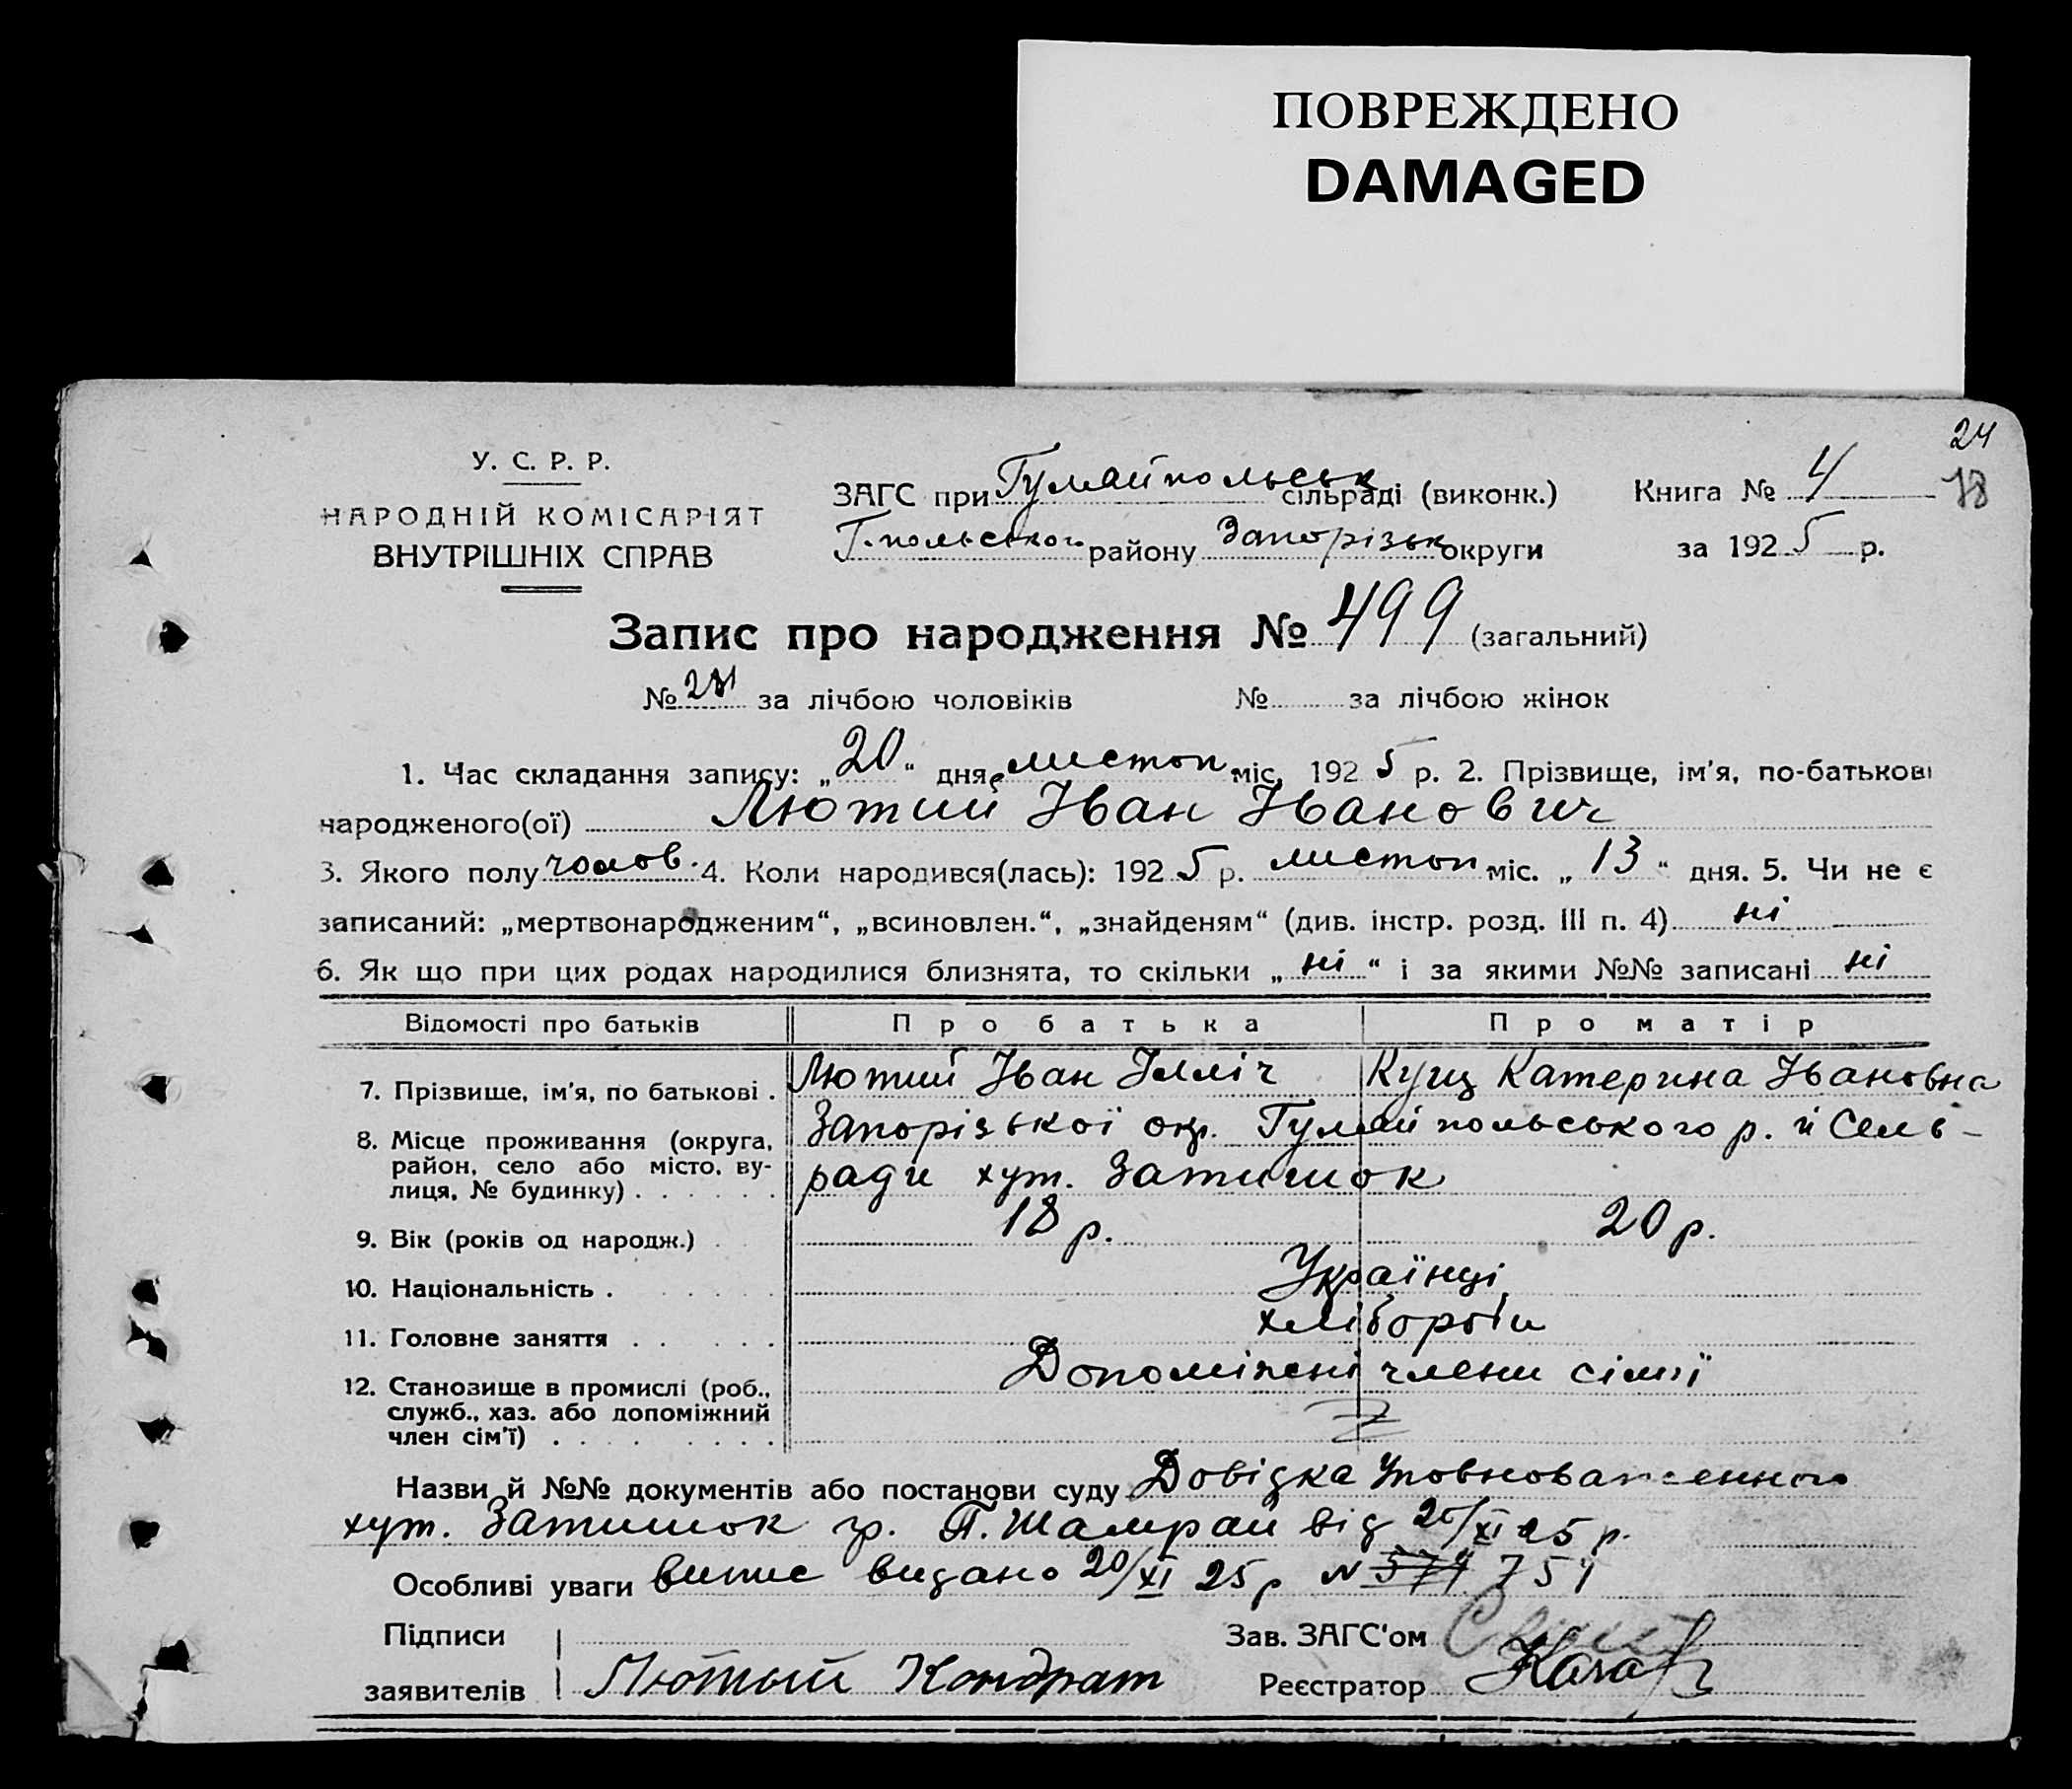 ПОВРЕЖДЕНО
DAMAGED
24
18
У. С. Р. Р.
НАРОДНІЙ КОМІСАРІЯТ
ВНУТРІШНІХ СПРАВ
ЗАГС при Гуляйпольськ сільраді (виконк.)
Г.польського району Запорізьк округи
Книга № 4
за 1925 р.
Запис про народження № 499 (загальний)
№ за лічбою чоловіків № за лічбою жінок
1. Час складання запису: „20“ дня листоп міс. 1925 р. 2. Прізвище, ім'я, по-батькові
народженого(ої) Лютий Іван Іванович
3. Якого полу чолов. 4. Коли народився(лась): 1925 р. листоп міс. „13“ дня. 5. Чи не є
записаний: „мертвонародженим“, „всиновлен.“, „знайденям“ (див. інстр. розд. III п. 4) ні
6. Як що при цих родах народилися близнята, то скільки „ні“ і за якими №№ записані ні
Відомості про батьків Про батька Про матір
7. Прізвище, ім'я, по батькові . Лютий Іван Ілліч Кущ Катерина Івановна
8. Місце проживання (округа, район, село або місто, ву-лиця, № будинку) . . . . . . Запорізької окр. Гуляйпольського р. й Сель-
ради хут. Затишок
9. Вік (років од народж.) 18 р. 20 р.
10. Національність . Українці
11. Головне заняття . . хлібороби
12. Становище в промислі (роб., служб., хаз. або допоміжний член сім'ї) . . . . Допоміжні члени сімї
Назви й №№ документів або постанови суду Довідка Уповноваженного
хут. Затишок гр. П. Шамрай від 20/XI 25 р.
Особливі уваги випис видано 20/XI 25 р N 574 754
Підписи
заявителів Лютый Кондрат
Зав. ЗАГС'ом
Реєстратор